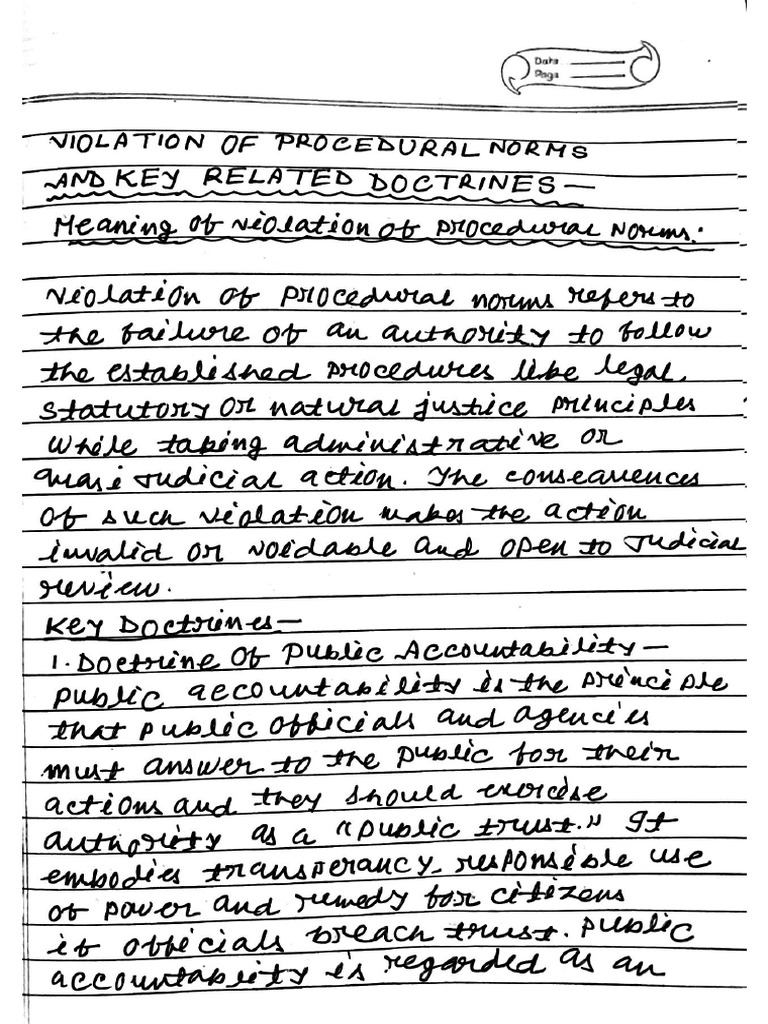 Date
Page
VIOLATION OF PROCEDURAL NORMS
AND KEY RELATED DOCTRINES—
Meaning of violation of procedural Norms:
violation of procedural norms refers to
the failure of an authority to follow
the established procedures like legal,
statutory or natural justice principles
while taking administrative or
quasi judicial action. The consequences
of such violation makes the action
invalid or voidable and open to judicial
review.
Key Doctrines—
1. Doctrine of Public Accountability—
public accountability is the principle
that public officials and agencies
must answer to the public for their
actions and they should exercise
authority as a "public trust." It
embodies transperancy, responsible use
of power and remedy for citizens
if officials breach trust. public
accountability is regarded as an